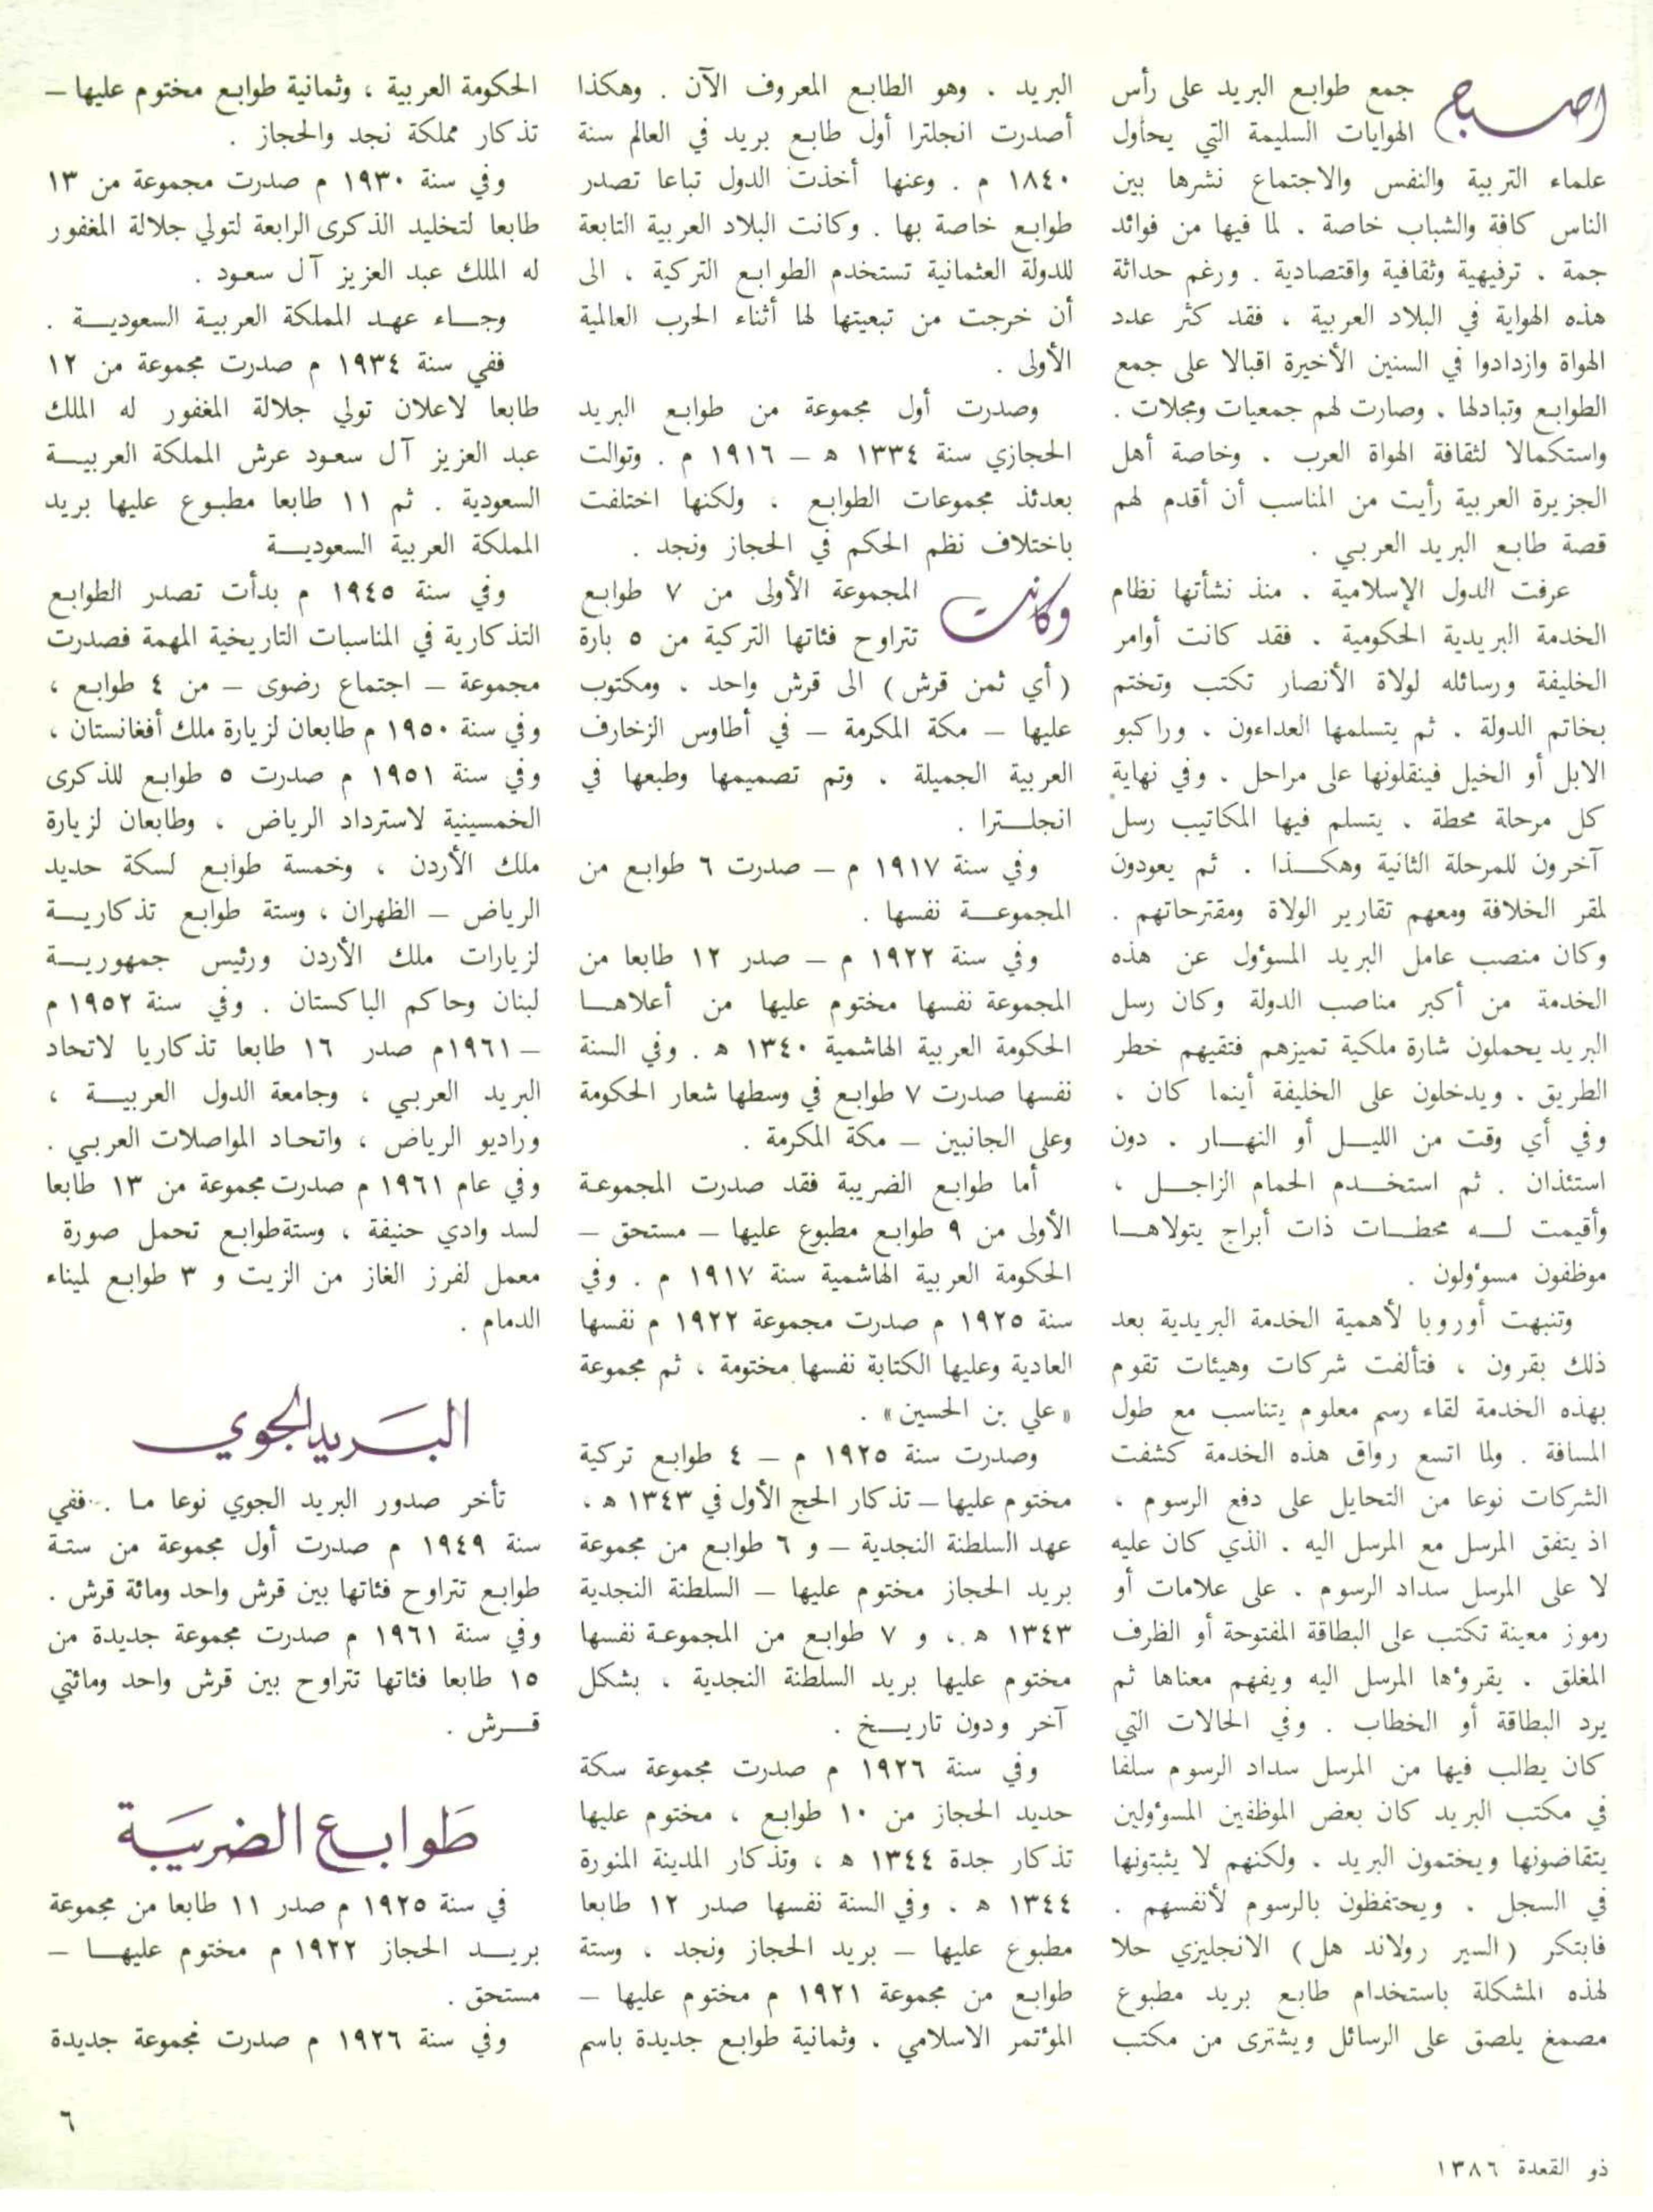 اصبح جمع طوابع البريد على رأس
الهوايات السليمة التي يحاول
علماء التربية والنفس والاجتماع نشرها بين
الناس كافة والشباب خاصة ، لما فيها من فوائد
جمة ، ترفيهية وثقافية واقتصادية . ورغم حداثة
هذه الهواية في البلاد العربية ، فقد كثر عدد
الهواة وازدادوا في السنين الأخيرة اقبالا على جمع
الطوابع وتبادلها ، وصارت لهم جمعيات ومجلات .
واستكمالا لثقافة الهواة العرب ، وخاصة أهل
الجزيرة العربية رأيت من المناسب أن أقدم لهم
قصة طابع البريد العربي .
عرفت الدول الإسلامية ، منذ نشأتها نظام
الخدمة البريدية الحكومية ، فقد كانت أوامر
الخليفة ورسائله لولاة الأنصار تكتب وتختم
بخاتم الدولة ، ثم يتسلمها العداءون ، وراكبو
الابل أو الخيل فينقلونها على مراحل ، وفي نهاية
كل مرحلة محطة ، يتسلم فيها المكاتيب رسل
آخرون للمرحلة الثانية وهكـذا . ثم يعودون
لمقر الخلافة ومعهم تقارير الولاة ومقترحاتهم .
وكان منصب عامل البريد المسؤول عن هذه
الخدمة من أكبر مناصب الدولة وكان رسل
البريد يحملون شارة ملكية تميزهم فتقيهم خطر
الطريق ، ويدخلون على الخليفة أينما كان ،
وفي أي وقت من الليـل أو النهـار ، دون
استئذان . ثم استخـدم الحمام الزاجـل ،
وأقيمت لـه محطـات ذات أبراج يتولاهـا
موظفون مسؤولون .
وتنبهت أوروبا لأهمية الخدمة البريدية بعد
ذلك بقرون ، فتألفت شركات وهيئات تقوم
بهذه الخدمة لقاء رسم معلوم يتناسب مع طول
المسافة . ولما اتسع رواق هذه الخدمة كشفت
الشركات نوعا من التحايل على دفع الرسوم ،
اذ يتفق المرسل مع المرسل اليه ، الذي كان عليه
لا على المرسل سداد الرسوم ، على علامات أو
رموز معينة تكتب على البطاقة المفتوحة أو الظرف
المغلق ، يقرؤها المرسل اليه ويفهم معناها ثم
يرد البطاقة أو الخطاب . وفي الحالات التي
كان يطلب فيها من المرسل سداد الرسوم سلفا
في مكتب البريد كان بعض الموظفين المسؤولين
يتقاضونها ويختمون البريد ، ولكنهم لا يثبتونها
في السجل ، ويحتفظون بالرسوم لأنفسهم .
فابتكر ( السير رولاند هل ) الانجليزي حلا
لهذه المشكلة باستخدام طابع بريد مطبوع
مصمغ يلصق على الرسائل ويشترى من مكتب
البريد ، وهو الطابع المعروف الآن . وهكذا
أصدرت انجلترا أول طابع بريد في العالم سنة
١٨٤٠ م . وعنها أخذت الدول تباعا تصدر
طوابع خاصة بها . وكانت البلاد العربية التابعة
للدولة العثمانية تستخدم الطوابع التركية ، الى
أن خرجت من تبعيتها لها أثناء الحرب العالمية
الأولى .
وصدرت أول مجموعة من طوابع البريد
الحجازي سنة ١٣٣٤ ه – ١٩١٦ م . وتوالت
بعدئذ مجموعات الطوابع ، ولكنها اختلفت
باختلاف نظم الحكم في الحجاز ونجد .
وكانت المجموعة الأولى من ٧ طوابع
تتراوح فئاتها التركية من ٥ بارة
( أي ثمن قرش ) الى قرش واحد ، ومكتوب
عليها – مكة المكرمة – في أطاوس الزخارف
العربية الجميلة ، وتم تصميمها وطبعها في
انجلـترا .
وفي سنة ١٩١٧ م – صدرت ٦ طوابع من
المجموعـة نفسها .
وفي سنة ١٩٢٢ م – صدر ١٢ طابعا من
المجموعة نفسها مختوم عليها من أعلاهـا
الحكومة العربية الهاشمية ١٣٤٠ ه . وفي السنة
نفسها صدرت ٧ طوابع في وسطها شعار الحكومة
وعلى الجانبين – مكة المكرمة .
أما طوابع الضريبة فقد صدرت المجموعة
الأولى من ٩ طوابع مطبوع عليها – مستحق –
الحكومة العربية الهاشمية سنة ١٩١٧ م . وفي
سنة ١٩٢٥ م صدرت مجموعة ١٩٢٢ م نفسها
العادية وعليها الكتابة نفسها مختومة ، ثم مجموعة
« علي بن الحسين» .
وصدرت سنة ١٩٢٥ م – ٤ طوابع تركية
مختوم عليها – تذكار الحج الأول في ١٣٤٣ ه ،
عهد السلطنة النجدية – و ٦ طوابع من مجموعة
بريد الحجاز مختوم عليها – السلطنة النجدية
١٣٤٣ ه ، و ٧ طوابع من المجموعة نفسها
مختوم عليها بريد السلطنة النجدية ، بشكل
آخر ودون تاريـخ .
وفي سنة ١٩٢٦ م صدرت مجموعة سكة
حديد الحجاز من ١٠ طوابع ، مختوم عليها
تذكار جدة ١٣٤٤ ه ، وتذكار المدينة المنورة
١٣٤٤ ه ، وفي السنة نفسها صدر ١٢ طابعا
مطبوع عليها – بريد الحجاز ونجد ، وستة
طوابع من مجموعة ١٩٢١ م مختوم عليها –
المؤتمر الاسلامي ، وثمانية طوابع جديدة باسم
الحكومة العربية ، وثمانية طوابع مختوم عليها –
تذكار مملكة نجد والحجاز .
وفي سنة ١٩٣٠ م صدرت مجموعة من ١٣
طابعا لتخليد الذكرى الرابعة لتولي جلالة المغفور
له الملك عبد العزيز آل سعود .
وجـاء عهـد المملكة العربيـة السعوديـة .
ففي سنة ١٩٣٤ م صدرت مجموعة من ١٢
طابعا لاعلان تولي جلالة المغفور له الملك
عبد العزيز آل سعود عرش المملكة العربيـة
السعودية . ثم ١١ طابعا مطبـوع عليها بريد
المملكة العربية السعوديـة
وفي سنة ١٩٤٥ م بدأت تصدر الطوابع
التذكارية في المناسبات التاريخية المهمة فصدرت
مجموعة – اجتماع رضوى – من ٤ طوابع ،
وفي سنة ١٩٥٠ م طابعان لزيارة ملك أفغانستان ،
وفي سنة ١٩٥١ م صدرت ٥ طوابع للذكرى
الخمسينية لاسترداد الرياض ، وطابعان لزيارة
ملك الأردن ، وخمسة طوابع لسكة حديد
الرياض – الظهران ، وستة طوابع تذكاريـة
لزيارات ملك الأردن ورئيس جمهوريـة
لبنان وحاكم الباكستان . وفي سنة ١٩٥٢ م
– ١٩٦١م صدر ١٦ طابعا تذكاريا لاتحاد
البريد العربي ، وجامعة الدول العربيـة ،
وراديو الرياض ، واتحاد المواصلات العربي .
وفي عام ١٩٦١ م صدرت مجموعة من ١٣ طابعا
لسد وادي حنيفة ، وستةطوابع تحمل صورة
معمل لفرز الغاز من الزيت و ٣ طوابع لميناء
الدمام .
البريد الجوي
تأخر صدور البريد الجوي نوعا ما . ففي
سنة ١٩٤٩ م صدرت أول مجموعة من ستة
طوابع تتراوح فئاتها بين قرش واحد ومائة قرش .
وفي سنة ١٩٦١ م صدرت مجموعة جديدة من
١٥ طابعا فئاتها تتراوح بين قرش واحد ومائتي
قـرش .
طوابع الضريبة
في سنة ١٩٢٥ م صدر ١١ طابعا من مجموعة
بريـد الحجاز ١٩٢٢ م مختوم عليهـا –
مستحق .
وفي سنة ١٩٢٦ م صدرت مجموعة جديدة
٦
ذو القعدة ١٣٨٦